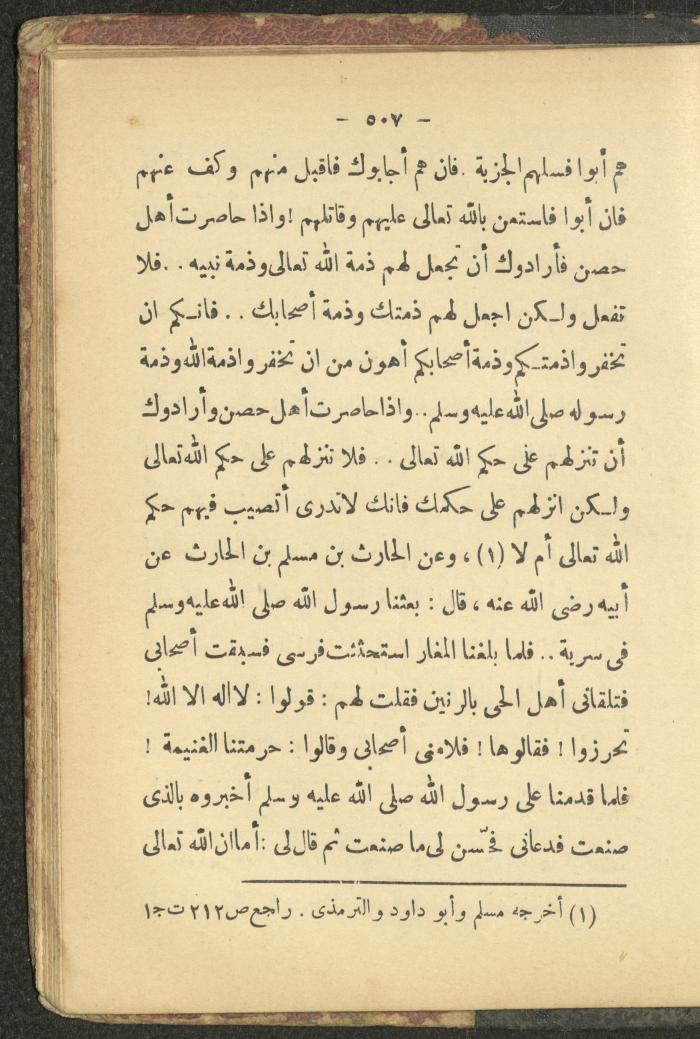 — ٥٠٧ —
هم أبوا فسلهم الجزية .فان هم أجابوك فاقبل منهم وكف عنهم
فان أبوا فاستعن بالله تعالى عليهم وقاتلهم !واذا حاصرت أهل
حصن فأرادوك أن تجعل لهم ذمة الله تعالى وذمة نبيه . .فلا
تفعل ولكن اجعل لهم ذمتك وذمة أصحابك . . فانكم ان
تخفروا ذمتكم وذمة أصحابكم أهون من ان تخفروا ذمة الله وذمة
رسوله صلى الله عليه وسلم. .واذا حاصرت أهل حصن وأرادوك
أن تنزلهم على حكم الله تعالى . . فلا تنزلهم على حكم الله تعالى
ولكن انزلهم على حكمك فانك لاتدرى أتصيب فيهم حكم
الله تعالى أم لا (١) ، وعن الحارث بن مسلم بن الحارث عن
أبيه رضى الله عنه ، قال : بعثنا رسول الله صلى الله عليه وسلم
فى سرية . . فلما بلغنا المغار استحثثت فرسى فسبقت أصحابى
فتلقانى أهل الحى بالرنين فقلت لهم : قولوا : لااله الا الله!
تحرزوا ! فقالوها ! فلامنى أصحابى وقالوا : حرمتنا الغنيمة !
فلما قدمنا على رسول الله صلى الله عليه وسلم أخبروه بالذى
صنعت فدعانى فحسّن لى ما صنعت ثم قال لى :أما ان الله تعالى
(١) أخرجه مسلم وأبو داود والترمذى . راجع ص ٢١٢ ت ج١